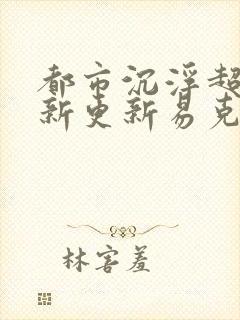 都市沉浮超
新更新易克
林害羞